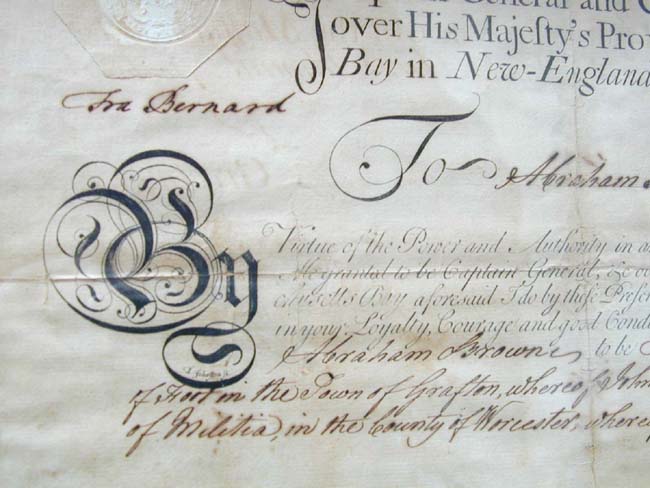 General and
over His Majeſty's Pro
Bay in New-England
Fra Bernard
To Abraham
By Virtue of the Power and Authority in
Me granted to be Captain General, &c
aforesaid I do by theſe Preſen
in your Loyalty, Courage and good Cond
Abraham Brown to be
of Foot in the Town of Grafton, whereof John
of Militia, in the County of Worcester, where